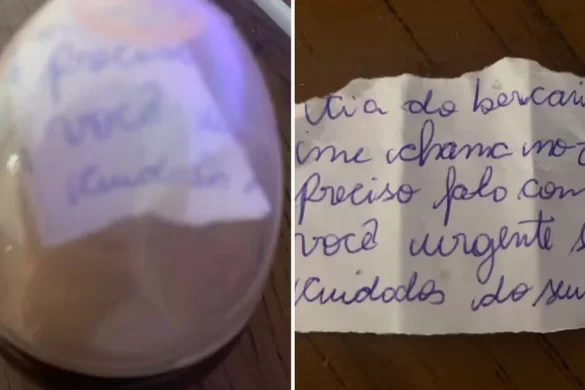 preciso
você
cuidados
tia do berçari
me chama no
preciso falo com
você urgente s
cuidados do seu